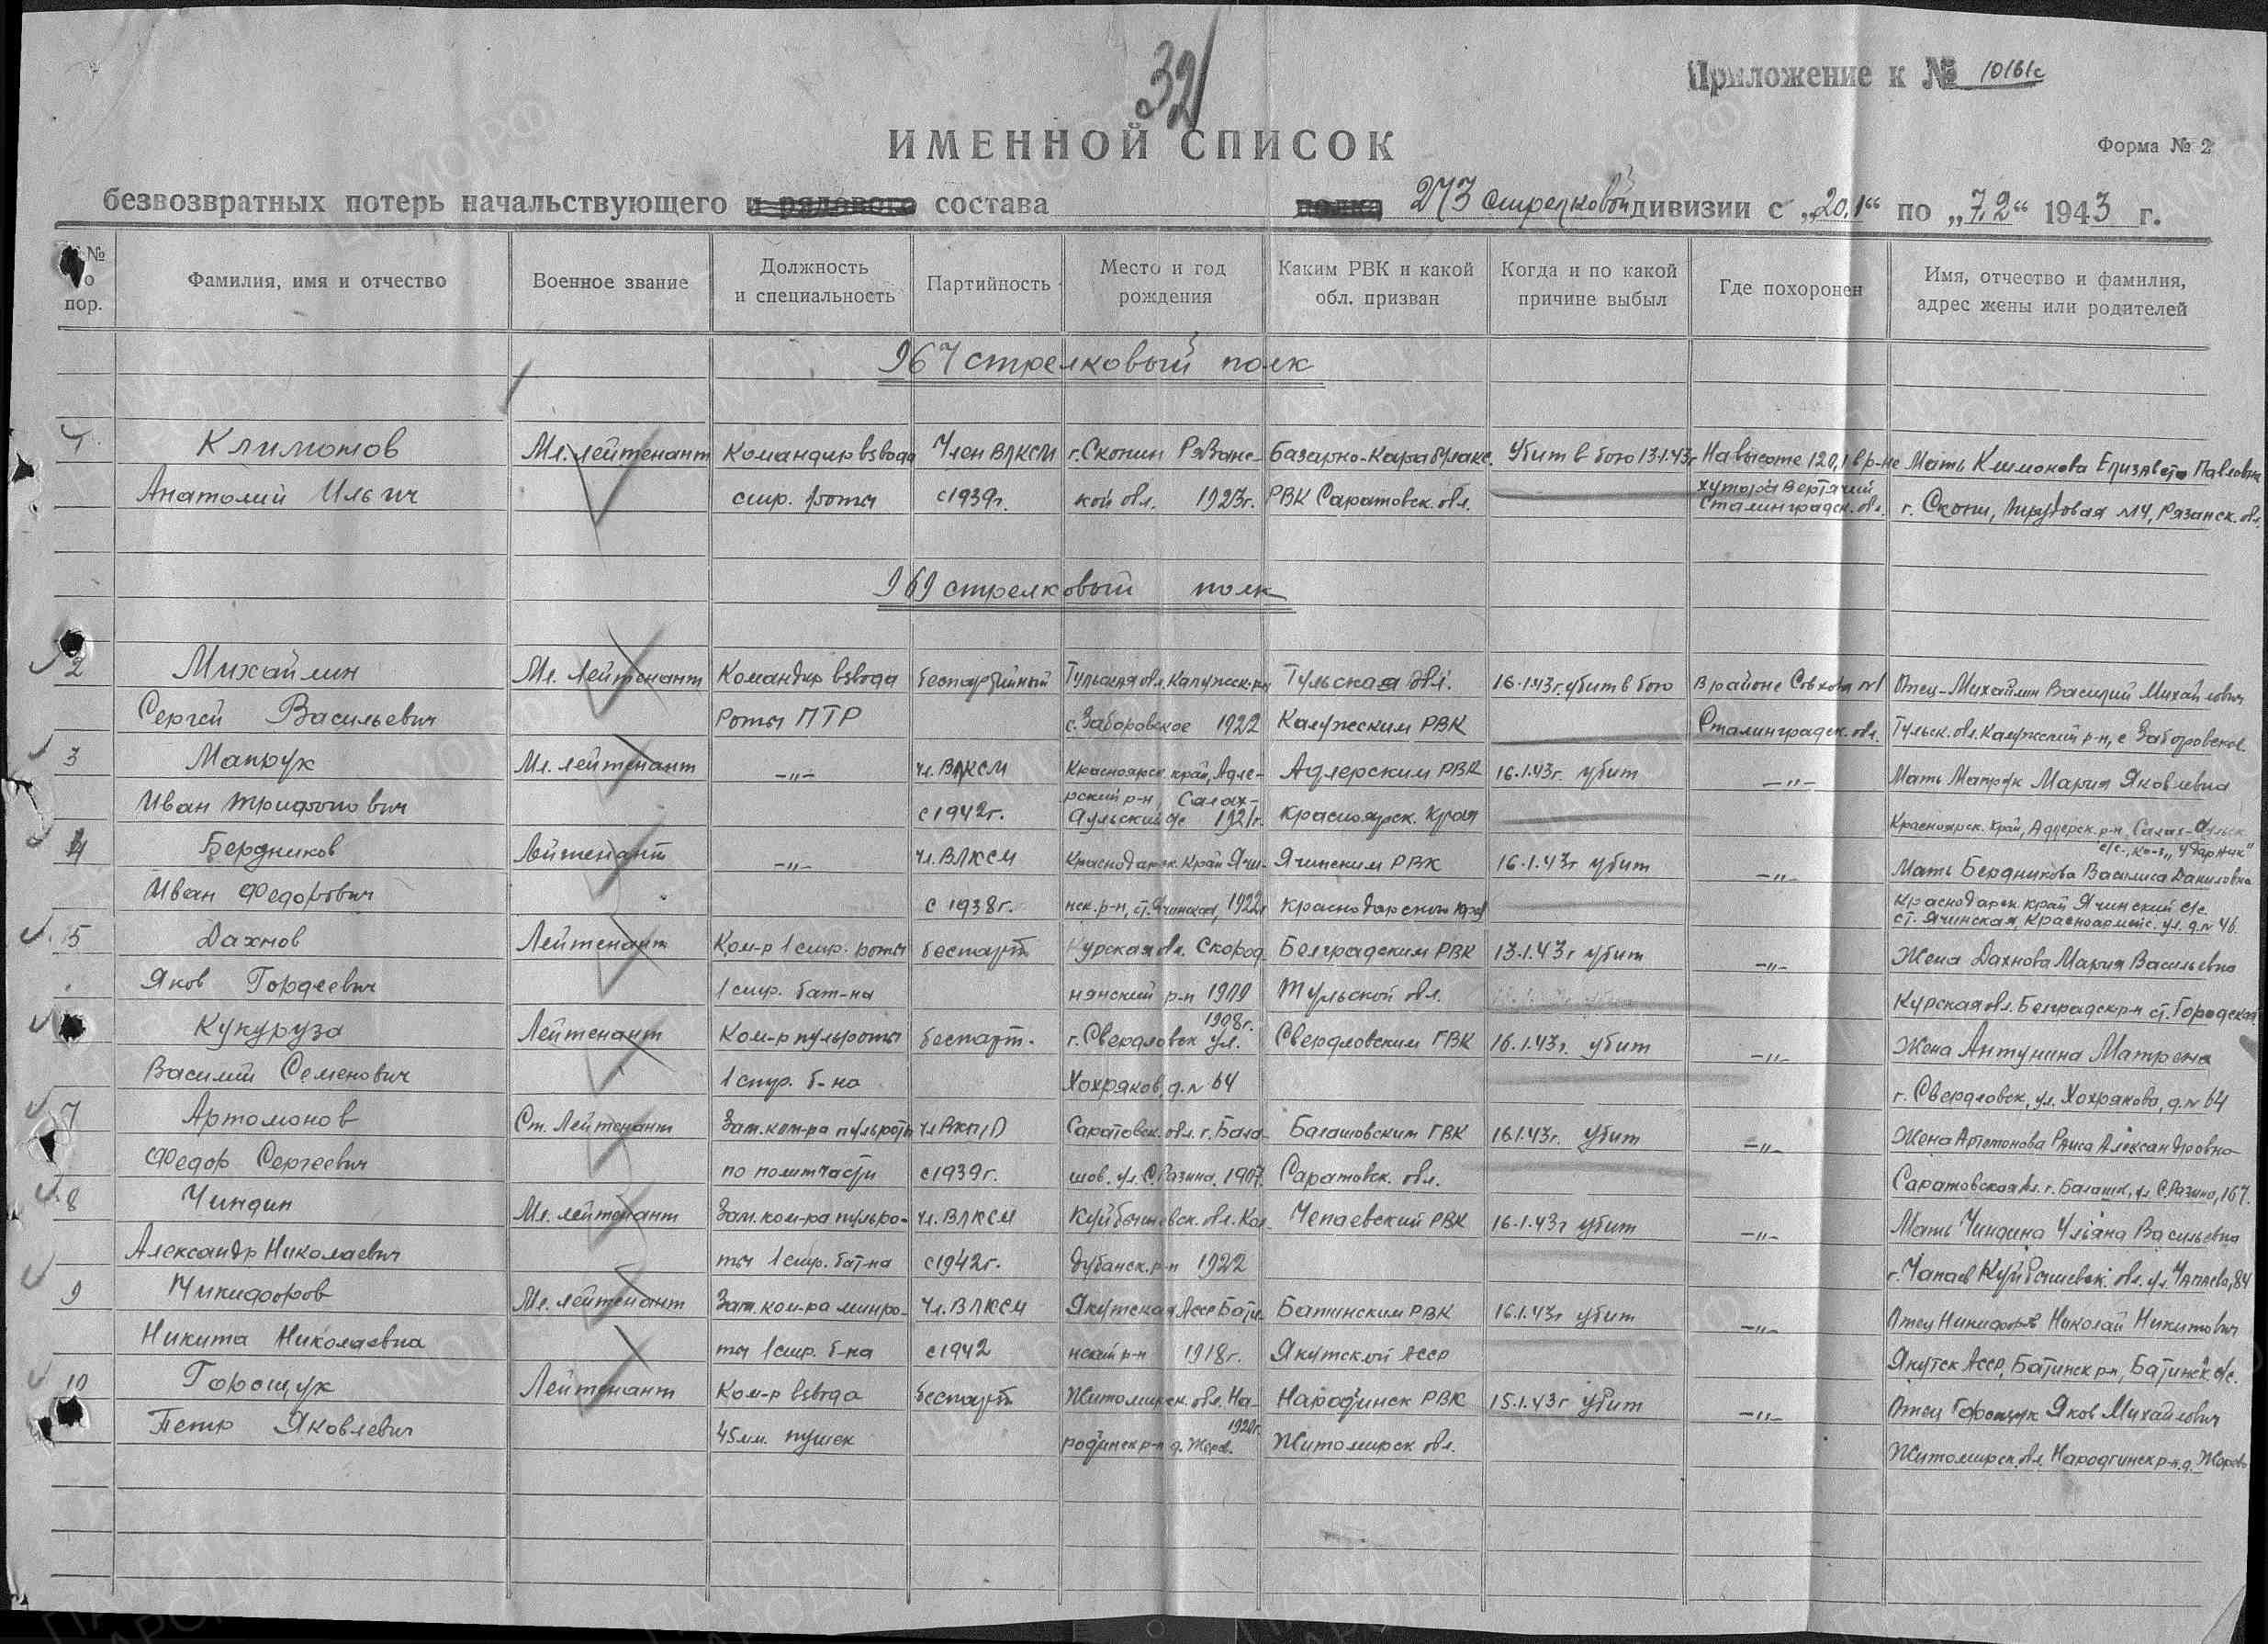 321
Приложение к № 10161с
ИМЕННОЙ СПИСОК
Форма № 2
безвозвратных потерь начальствующего и рядового состава полка 273 стрелковой дивизии с „20.1“ по „7.2“ 1943 г.
№ по пор. Фамилия, имя и отчество Военное звание Должность и специальность Партийность Место и год рождения Каким РВК и какой обл. призван Когда и по какой причине выбыл Где похоронен Имя, отчество и фамилия, адрес жены или родителей
967 стрелковый полк
1 Климонов Мл. лейтенант Командир взвода Член ВЛКСМ г. Скопин Рязанс- Базарно-Карабулакс. Убит в бою 13.1.43г На высоте 120,1 в р-не Мать Климонова Елизавета Павловна
Анатолий Ильич стр. роты с 1939г. кой обл. 1923г. РВК Саратовск. обл. хутора Вертячий Сталинградск. обл. г. Скопин, Трудовая №4, Рязанск. обл.
969 стрелковый полк
2 Михайлин Мл. Лейтенант Командир взвода беспартийный Тульская обл. Калужск. р-н Тульская обл. 16.1.43г. убит в бою В районе Совхоза №1 Отец-Михайлин Василий Михайлович
Сергей Васильевич Роты ПТР с. Заборовское 1922 Калужским РВК Сталинградск. обл. Тульск. обл. Калужский р-н, с Заборовское
3 Мапрук Мл. лейтенант -„- чл. ВЛКСМ Красноярск. край, Адле- Адлерским РВК 16.1.43г. убит -„- Мать Мапрук Мария Яковлевна
Иван Трифонович с 1942г. рский р-н, Салах- Аульский с/с 1921г. Красноярск. края Красноярск. край, Адлерск. р-н, Салах-Аульск. с/с., к-з „Ударник“
4 Бердников Лейтенант -„- чл. ВЛКСМ Краснодарск. Край Ячи- Ячинским РВК 16.1.43г убит -„- Мать Бердникова Василиса Даниловна
Иван Федорович с 1938г. нск. р-н, ст. Ячинская, 1922г Краснодарского края Краснодарск край Ячинский с/с ст. Ячинская, Красноармейс. ул. д. № 46.
5 Дахнов Лейтенант Ком-р 1 стр. роты беспарт Курская обл. Скород- Белградским РВК 13.1.43г убит -„- Жена Дахнова Мария Васильевна
Яков Гордеевич 1 стр. бат-на нянский р-н 1909 Тульской обл. Курская обл. Белградск р-н ст. Городская
Кукуруза Лейтенант Ком-р пульроты беспарт. г. Свердловск ул. 1908г. Свердловским ГВК 16.1.43г. убит -„- Жена Антунина Матрена
Василий Семенович 1 стр. б-на Хохряков, д. № 64 г. Свердловск, ул. Хохрякова, д. № 64
7 Артомонов Ст. Лейтенант Зам. ком-ра пульроты чл ВКП/б Саратовск. обл. г. Бала- Балашовским ГВК 16.1.43г. убит -„- Жена Артомонова Раиса Александровна
Федор Сергеевич по политчасти с 1939г. шов. ул. С. Разина, 1907. Саратовск. обл. Саратовская обл. г. Балашов, ул. С. Разина, 167.
8 Чиндин Мл. лейтенант Зам. ком-ра пульро- чл. ВЛКСМ Куйбышевск. обл. Кол- Чепаевский РВК 16.1.43г убит -„- Мать Чиндина Ульяна Васильевна
Александр Николаевич ты 1 стр. бат-на с 1942г. дубанск. р-н 1922 г. Чапаев Куйбышевск. обл. ул. Чапаева, 84
9 Никифоров Мл. лейтенант Зам. ком-ра минро- чл. ВЛКСМ Якутская Асср Бати- Батинским РВК 16.1.43г убит -„- Отец Никифоров Николай Никитович
Никита Николаевиа ты 1 стр. б-на с 1942 нский р-н 1918г. Якутской Асср Якутск Асср, Батинск р-н, Батинск с/с.
10 Горощук Лейтенант Ком-р взвода беспарт Житомирск. обл. На- Народинск РВК 15.1.43г убит -„- Отец Горощук Яков Михайлович
Петр Яковлевич 45 мм. пушек родинск р-н д. Жерев. 1920г. Житомирск обл. Житомирск. обл. Народгинск р-н. д. Жерево